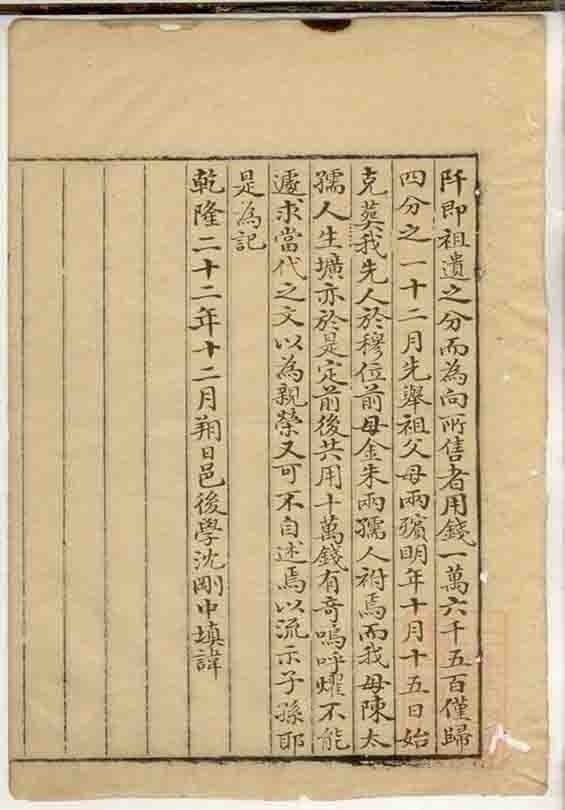 阡即祖遺之分而為向所售者用錢一萬六千五百僅歸
四分之一十二月先舉祖父母兩殯明年十月十五日始
克葬我先人於穆位前母金朱兩孺人祔焉而我母陳太
孺人生壙亦於是定前後共用十萬錢有奇嗚呼燿不能
遽求當代之文以為親榮又可不自述焉以流示子孫耶
是為記
乾隆二十二年十二月朔日邑後學沈剛中填諱